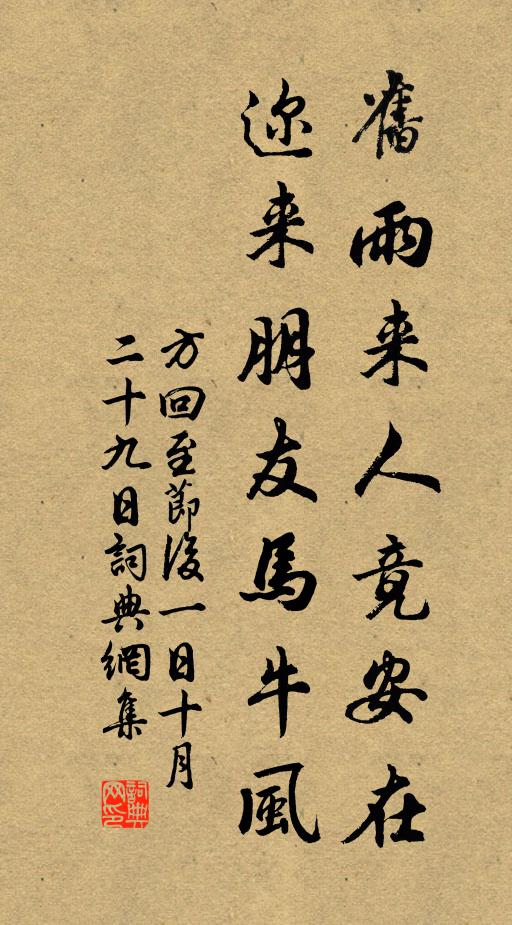 舊雨来人竟安在
迩来朋友馬牛風
方回至節後一日十月
二十九日詞典網集
詞典网印